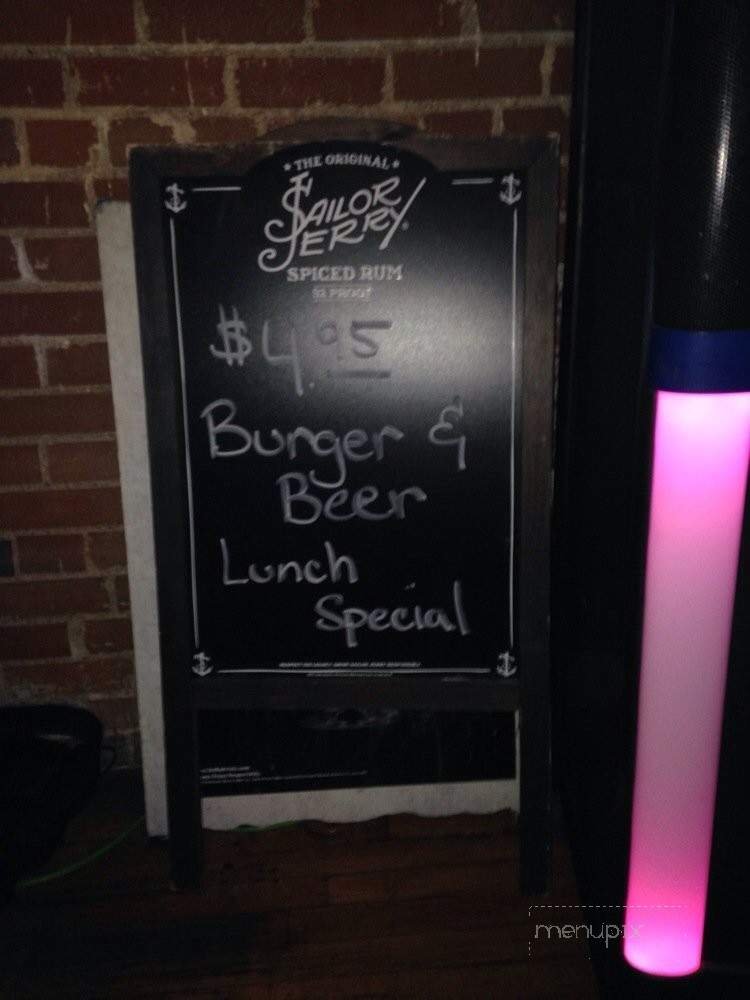 THE ORIGINAL
SAILOR
JERRY
SPICED RUM
92 PROOF
$4.95
Burger &
Beer
Lunch
Special
menupix